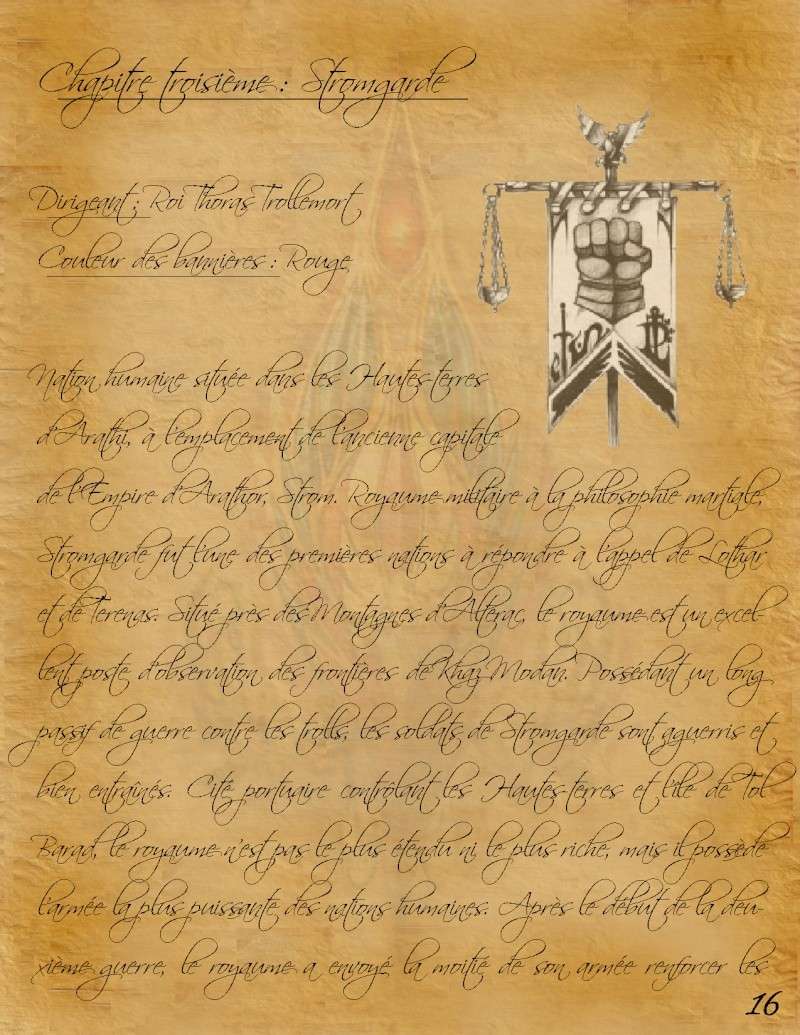 Chapitre troisième : Stromgarde
Dirigeant : Roi Thoras Trollemort
Couleur des bannières : Rouge
Nation humaine située dans les Hautes-terres
d'Arathi, à l'emplacement de l'ancienne capitale
de l'Empire d'Arathor, Strom. Royaume militaire à la philosophie martiale,
Stromgarde fut l'une des premières nations à répondre à l'appel de Lothar
et de Terenas. Situé près des Montagnes d'Alterac, le royaume est un excel-
lent poste d'observation des frontières de Khaz Modan. Possédant un long
passif de guerre contre les trolls, les soldats de Stromgarde sont aguerris et
bien entraînés. Cité portuaire contrôlant les Hautes-terres et l'île de Tol
Barad, le royaume n'est pas le plus étendu ni le plus riche, mais il possède
l'armée la plus puissante des nations humaines. Après le début de la deu-
xième guerre, le royaume a envoyé la moitié de son armée renforcer les
16